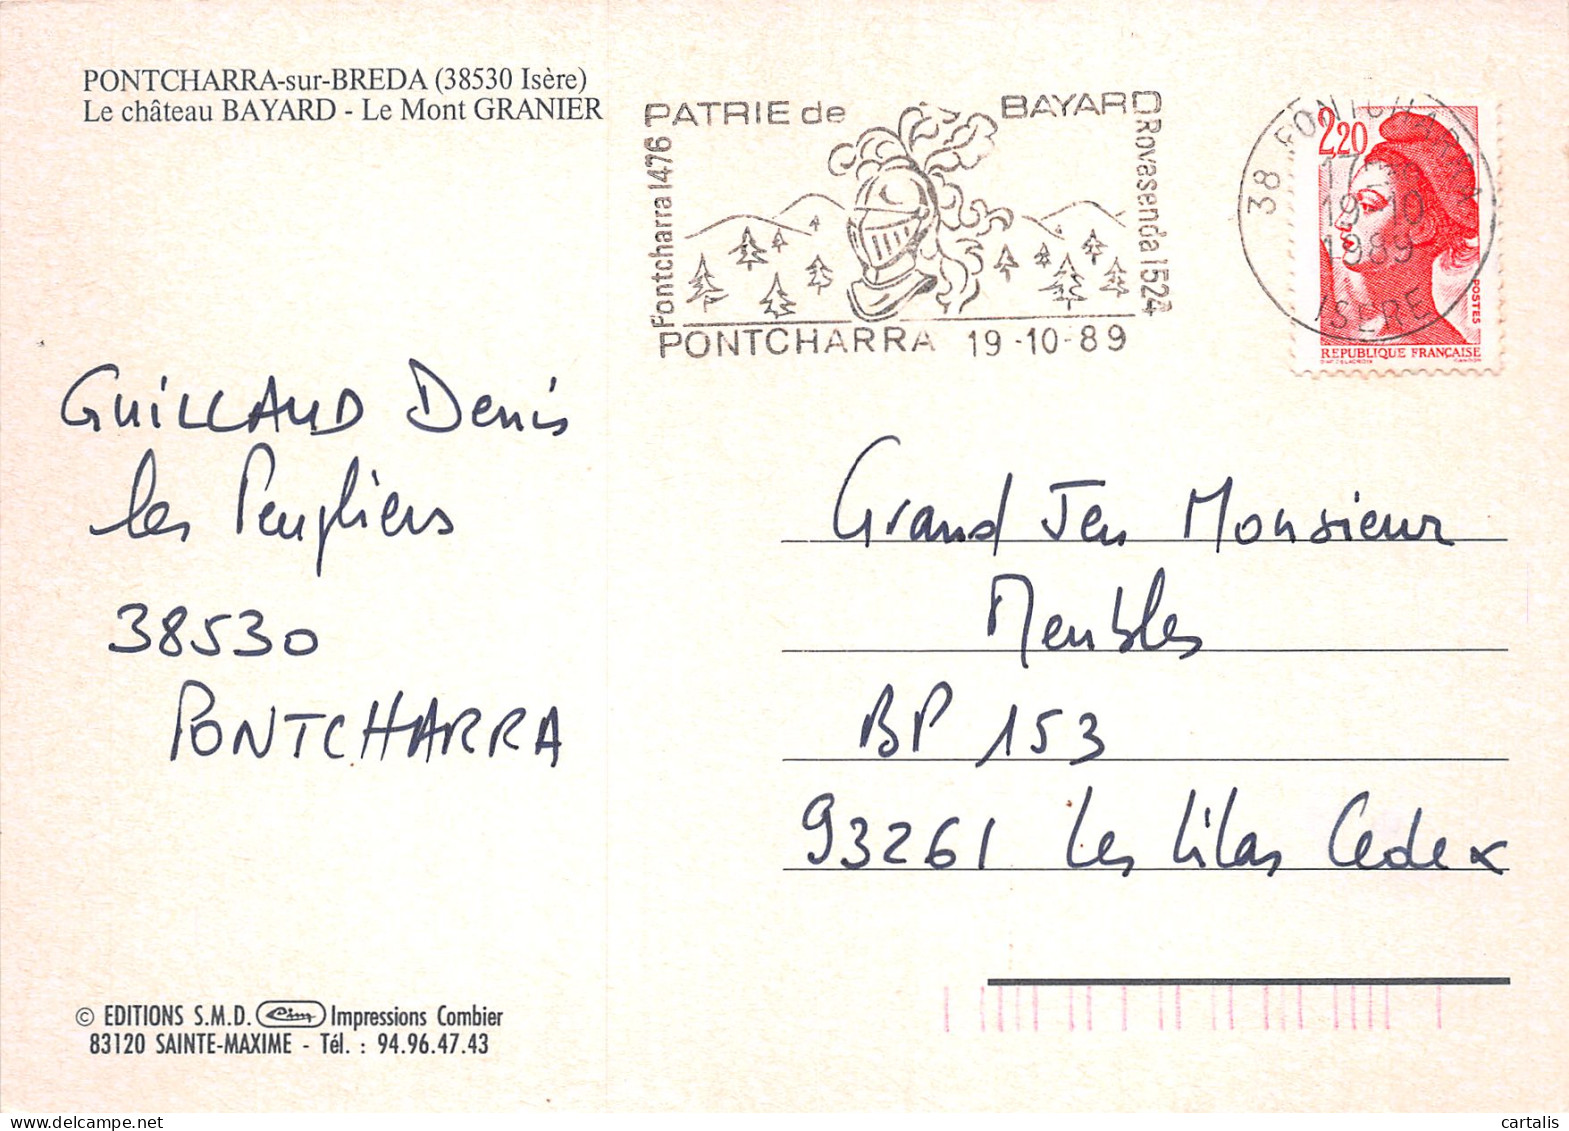 PONTCHARRA-sur-BREDA (38530 Isère)
Le château BAYARD - Le Mont GRANIER
PATRIE de BAYARD
Pontcharra 1476
Rovasenda 1524
PONTCHARRA 19-10-89
38 PONTCHARRA
17
19-10
1989
ISERE
2,20
POSTES
REPUBLIQUE FRANÇAISE
GUILLAUD Denis
les Peupliers
38530
PONTCHARRA
Grand Jeu Monsieur
Meubles
BP 153
93261 Les Lilas Cedex
© EDITIONS S.M.D. Cim Impressions Combier
83120 SAINTE-MAXIME - Tél. : 94.96.47.43
cartalis